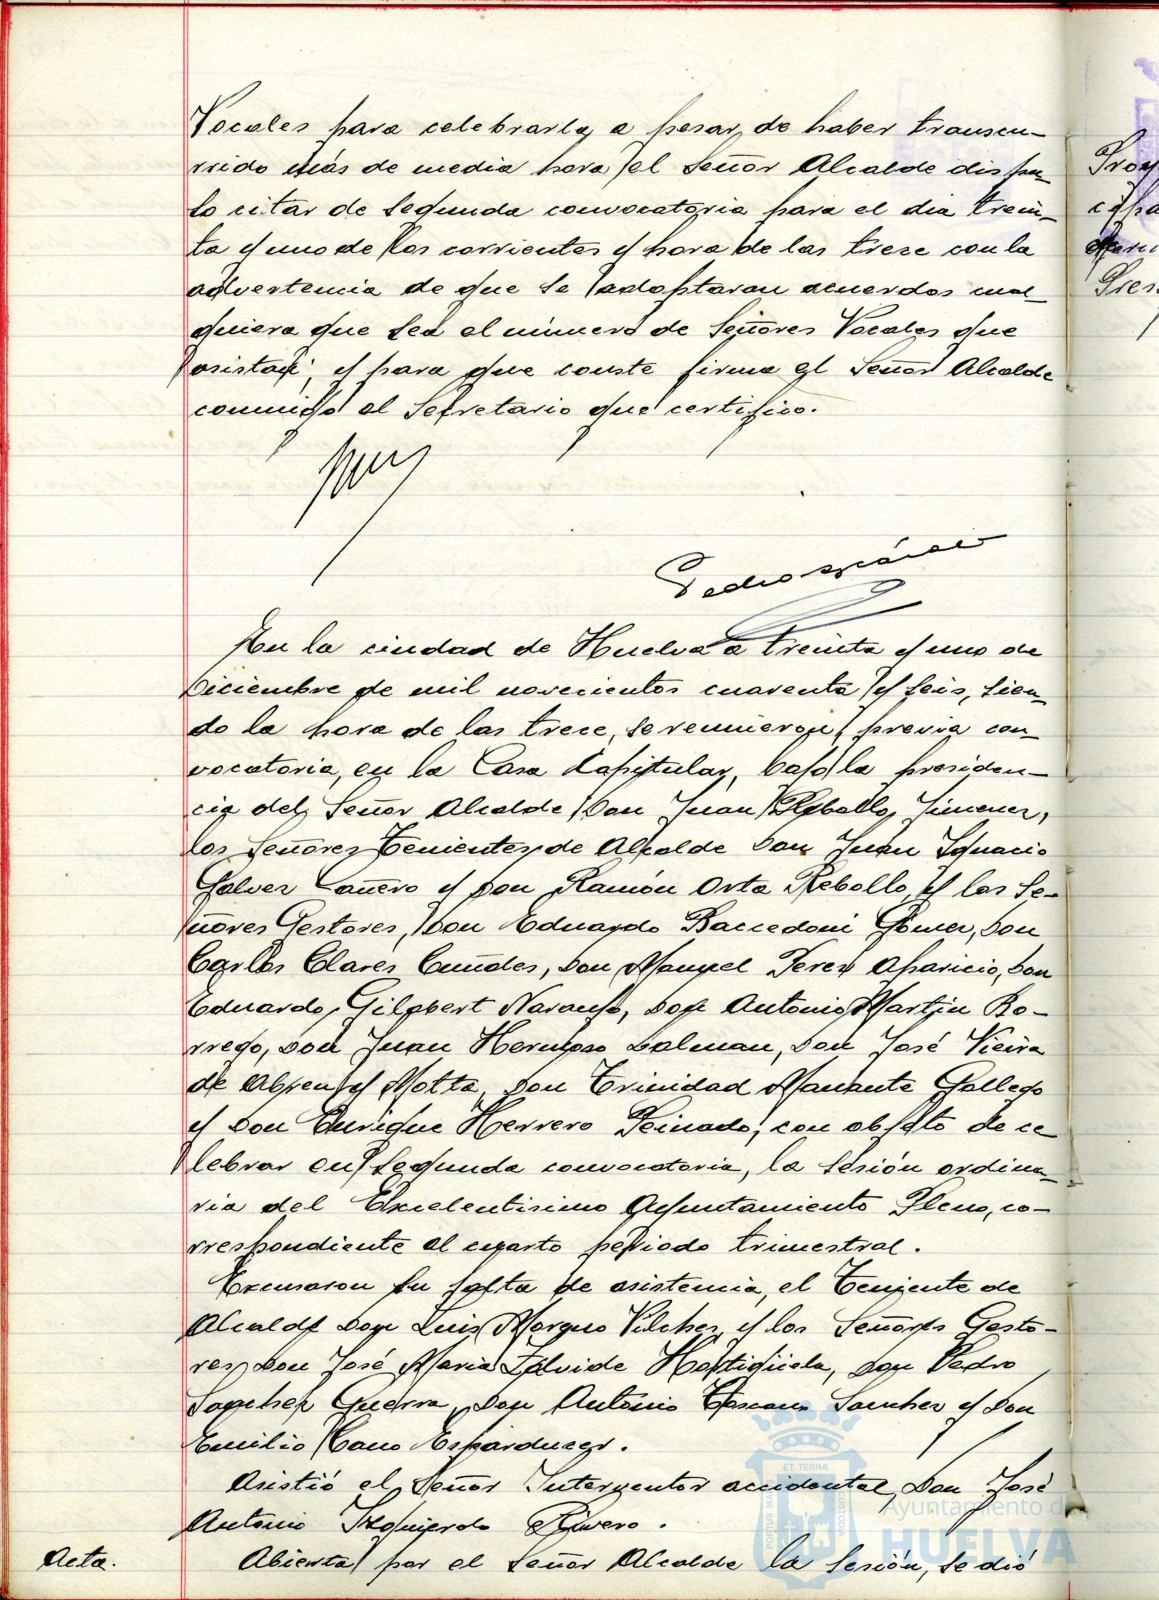 Vocales para celebrarla, a pesar de haber transcu-
rrido más de media hora, el Señor Alcalde dispu-
so citar de segunda convocatoria para el dia trein-
ta y uno de los corrientes y hora de las trece con la
advertencia de que se adoptaran acuerdos cual-
quiera que sea el número de Señores Vocales que
asistan; y para que conste firma el Señor Alcalde
conmigo el Secretario que certifico.
Pedro
En la ciudad de Huelva a treinta y uno de
Diciembre de mil novecientos cuarenta y seis, sien-
do la hora de las trece, se reunieron, previa con-
vocatoria, en la Casa Capitular, bajo la presiden-
cia del Señor Alcalde, Don Juan Rebollo Jimenez,
los Señores Tenientes de Alcalde Don Juan Ignacio
Galvez Cañero y Don Ramón Orta Rebollo, y los Se-
ñores Gestores, Don Eduardo Baccedoni Gómez, Don
Carlos Clares Cuñdes, Don Manuel Perez Aparicio, Don
Eduardo Gilabert Naranjo, Don Antonio Martin Bo-
rrego, Don Juan Hermoso Dalman, Don José Vieira
de Abreu y Motta, Don Trinidad Manante Gallego
y Don Enrique Herrero Peinado, con objeto de ce-
lebrar en segunda convocatoria, la sesión ordina-
ria del Excelentisimo Ayuntamiento Pleno, co-
rrespondiente al cuarto periodo trimestral.
Excusaron su falta de asistencia, el Teniente de
Alcalde Don Luis Morgno Vilchez y los Señores Gesto-
res, Don José Maria Zalvide Hortigüela, Don Pedro
Sanchez Guerra, Don Antonio Toscano Sanchez y Don
Emilio Cano Esparducer.
Asistió el Señor Interventor accidental, Don José
Antonio Izquierdo Rivero.
Acta. Abierta por el Señor Alcalde la sesión, se dió
Ayuntamiento de
HUELVA